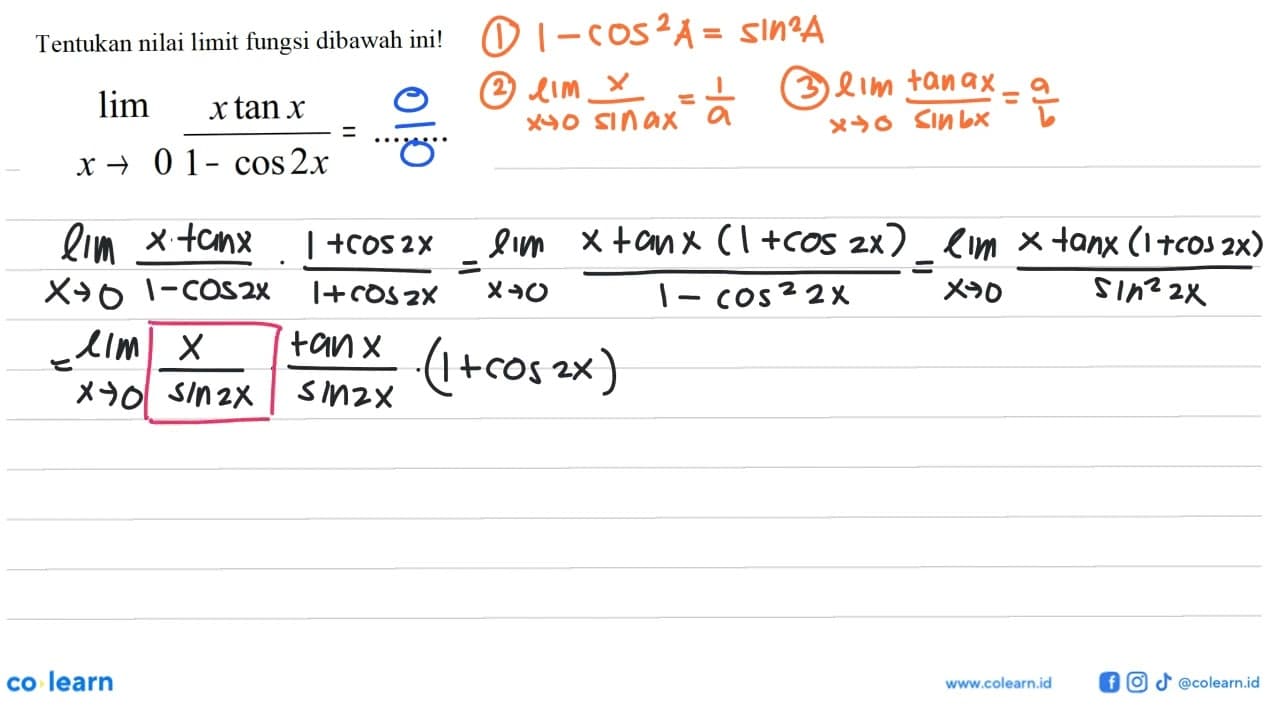 Tentukan nilai limit fungsi dibawah ini!
lim x→0 (x tan x)/(1 - cos 2x) = ........ 0/0
① 1 - cos²A = sin²A
② lim x→0 x/(sin ax) = 1/a
③ lim x→0 (tan ax)/(sin bx) = a/b
lim x→0 (x · tan x)/(1 - cos 2x) · (1 + cos 2x)/(1 + cos 2x) = lim x→0 (x tan x (1 + cos 2x))/(1 - cos² 2x) = lim x→0 (x tan x (1 + cos 2x))/(sin² 2x)
= lim x→0 x/(sin 2x) (tan x)/(sin 2x) · (1 + cos 2x)
co learn
www.colearn.id
@colearn.id